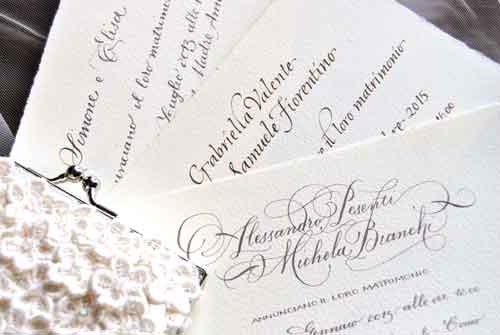 Simone e Elisa
nunciano il loro matrimon
Luglio 2013 alle
Madre
Gabriella Valente
Samuele Fiorentino
o il loro matrimonio
2015
Alessandro Pesenti
Michela Bianchi
ANNUNCIANO IL LORO MATRIMONIO
Gennaio 2013 alle ore 10.00